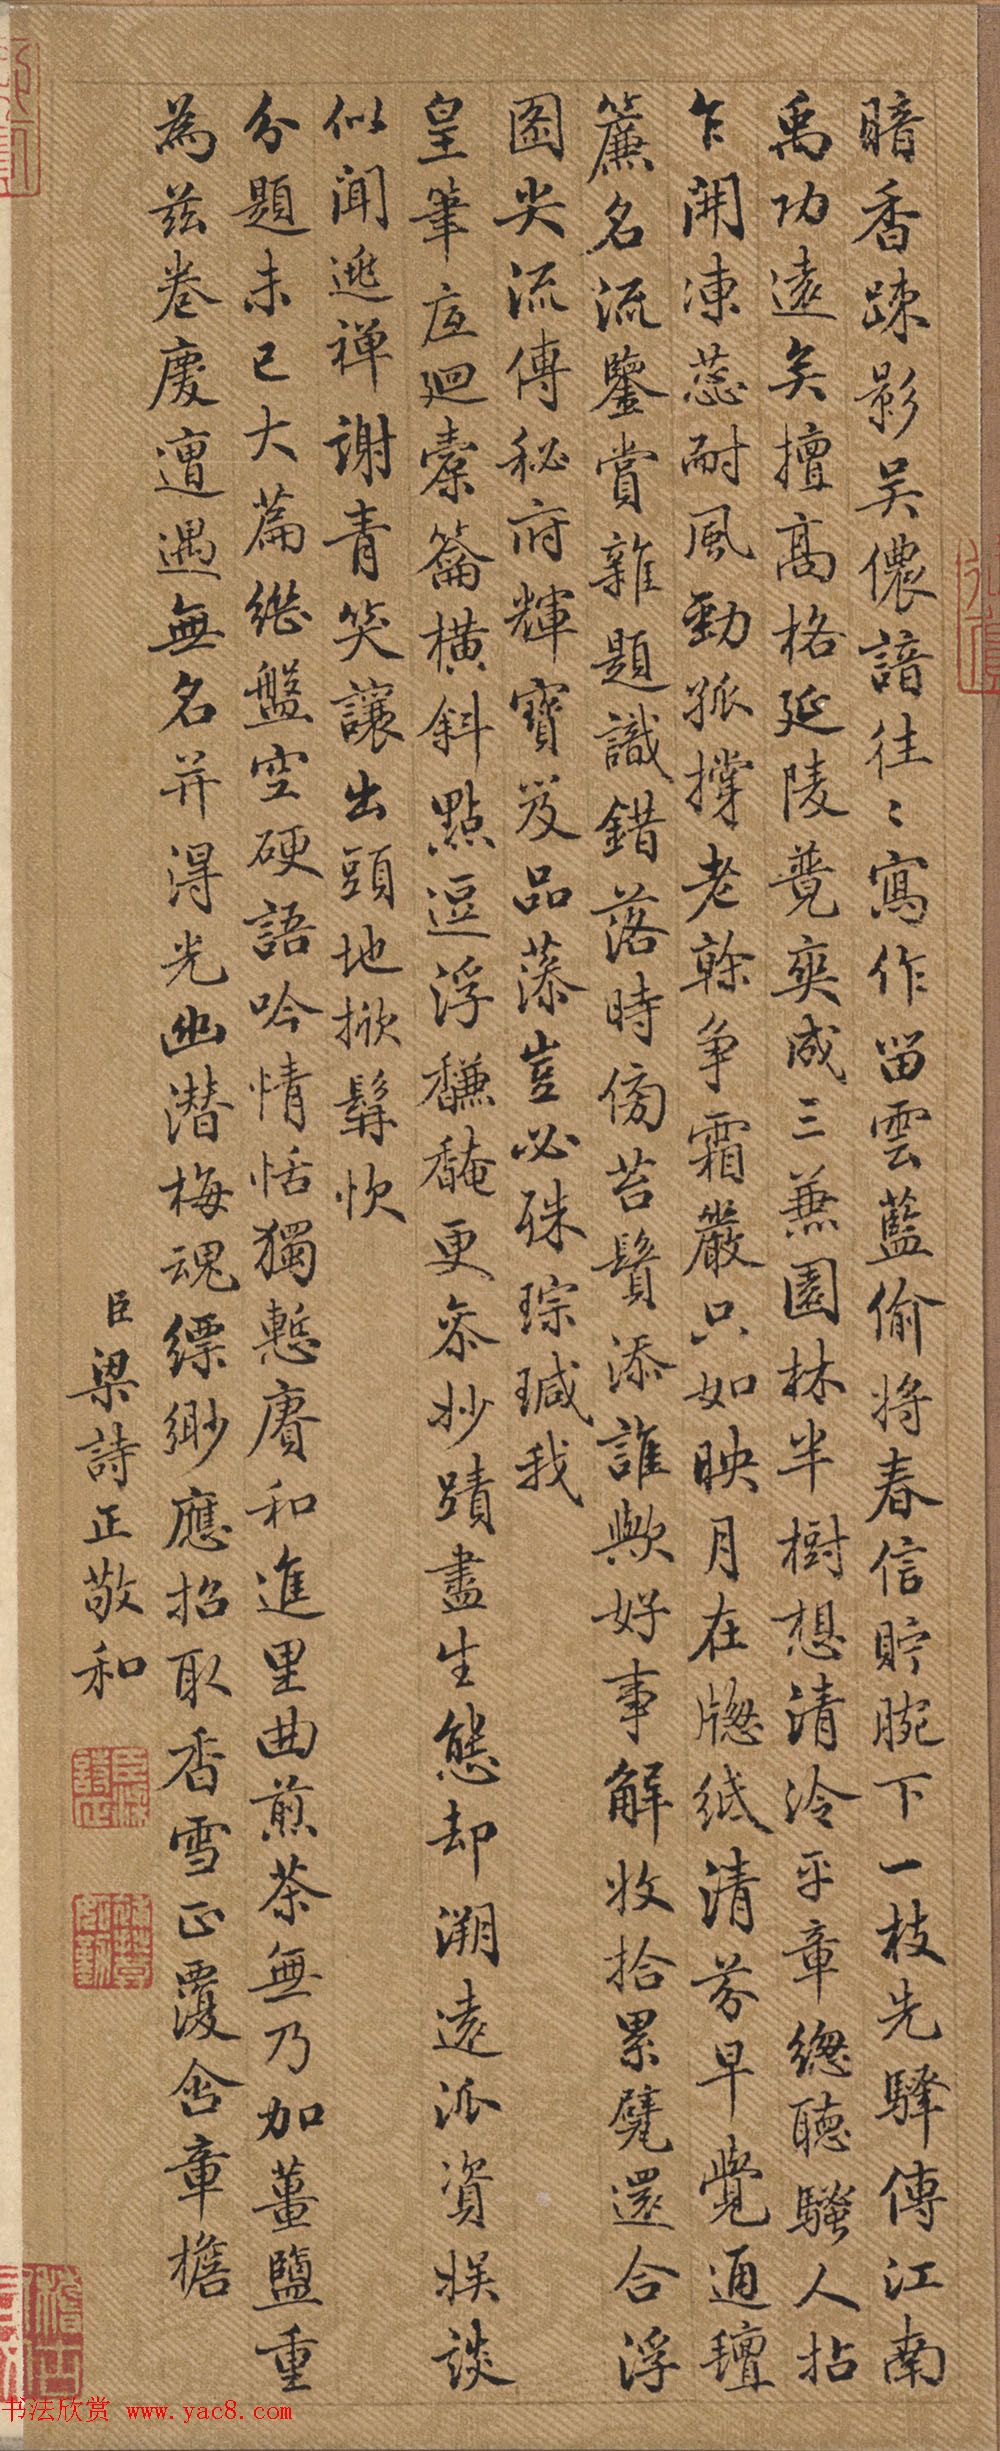 暗香疎影吴儂諳往〻寫作留雲藍偷將春信貯腕下一枝先驛傳江南
禹功遠矣擅高格延陵竟爽成三兼園林半樹想清泠平章總聽騷人拈
乍開凍蕊耐風勁孤撐老榦争霜嚴只如映月在牕紙清芬早覺通氊
簾名流鑒賞雜題識錯落時傍苔鬚添誰歟好事解收拾累甓還合浮
圖尖流傳秘府輝寶笈品藻豈必硃琮瑊我
皇筆底迴橐籥橫斜點逗浮馦馣更叅妙蹟盡生態却溯遠派資娱談
似聞逃禅謝青笑讓出頭地掀髯忺
分題未已大篇继盤空硬語吟情恬獨慙賡和進里曲煎茶無乃加薑鹽重
為兹卷慶遭遇無名并得光幽潜梅魂縹緲應招取香雪正覆含章檐
臣梁詩正敬和
书法欣赏 www.yac8.com